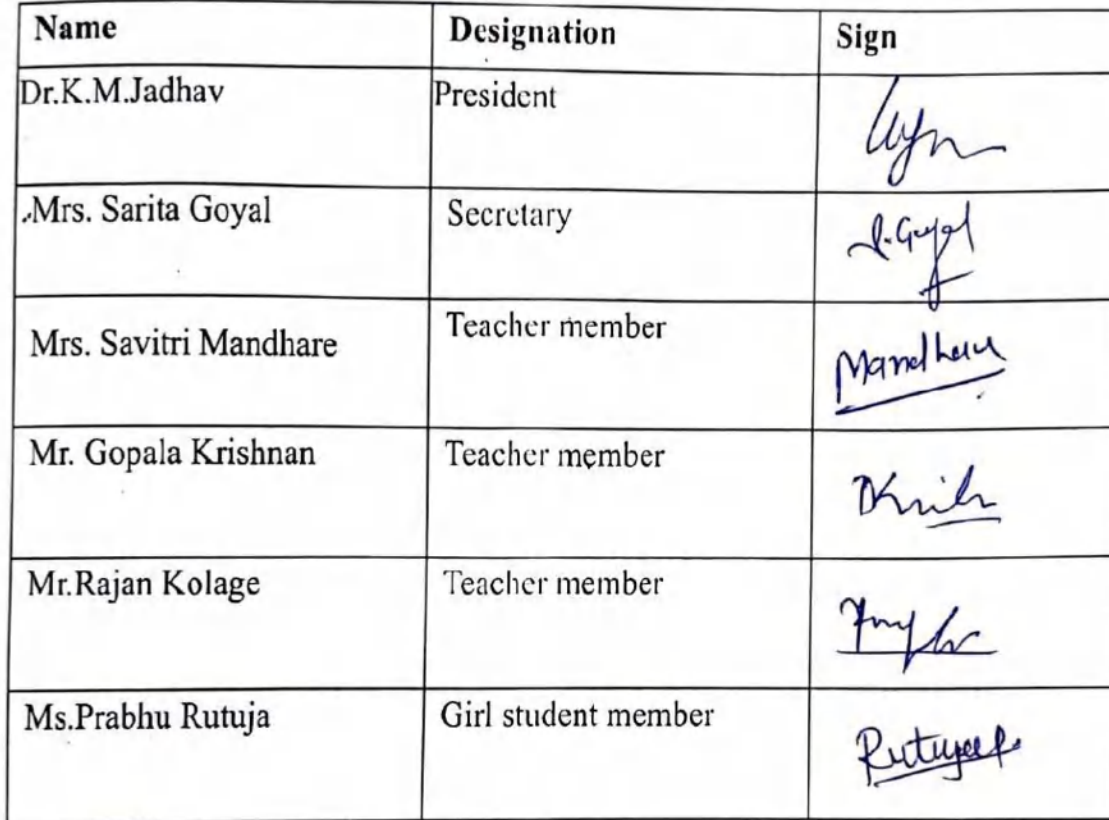 Name Designation Sign
Dr.K.M.Jadhav President
Mrs. Sarita Goyal Secretary S.Goyal
Mrs. Savitri Mandhare Teacher member Mandhare
Mr. Gopala Krishnan Teacher member
Mr.Rajan Kolage Teacher member
Ms.Prabhu Rutuja Girl student member